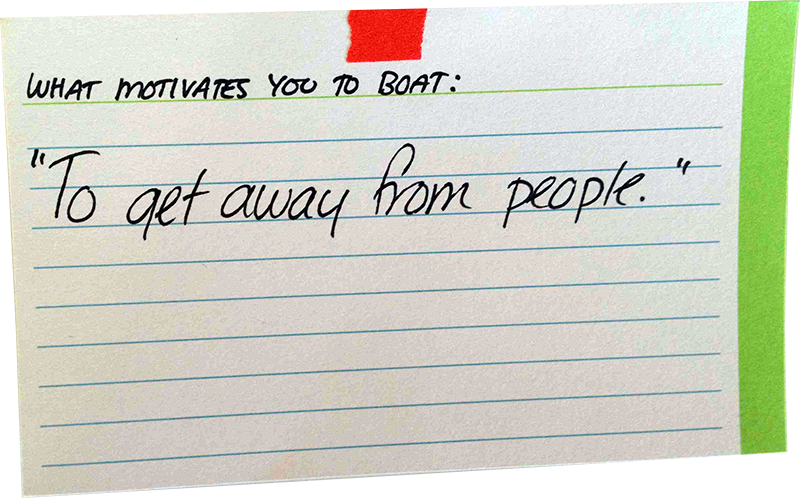 WHAT MOTIVATES YOU TO BOAT:
"To get away from people."